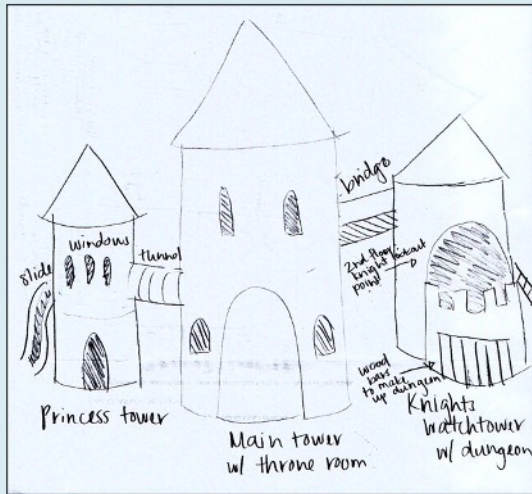 bridge
windows
tunnel
slide
2nd floor
knight lookout
point
wood
bars
to make
up dungeon
Princess tower
Main tower
w/ throne room
Knights
Watchtower
w/ dungeon